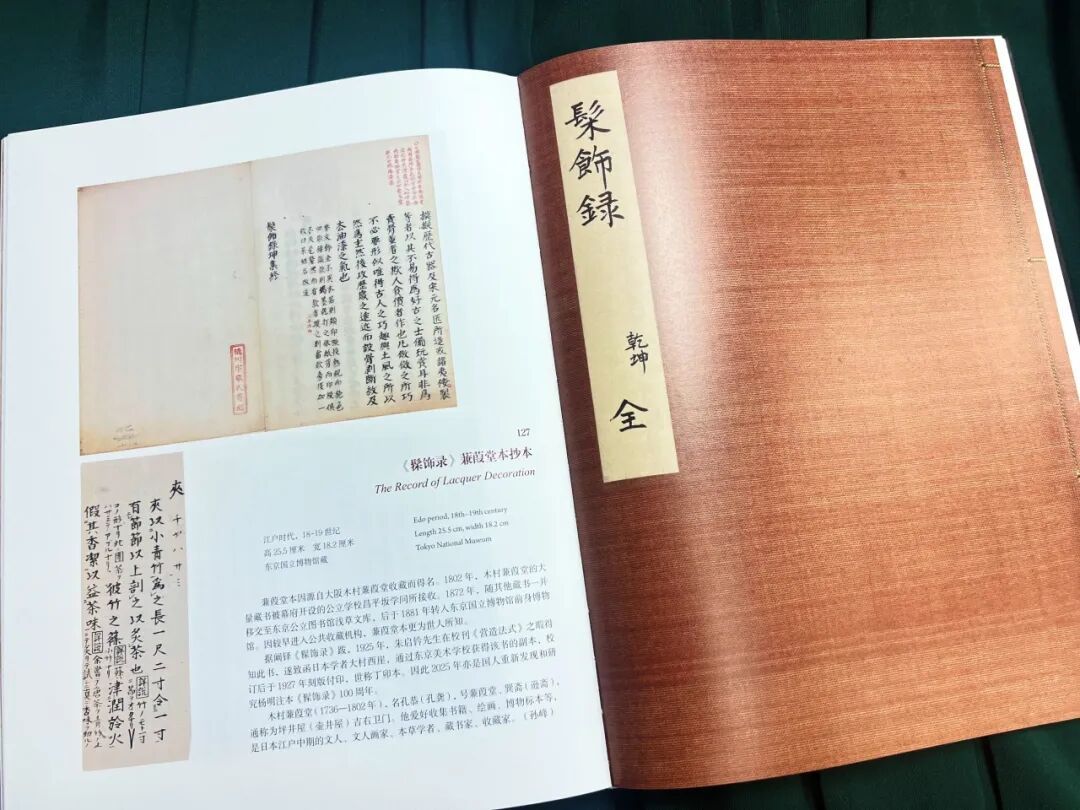 摸擬歷代古器及宋元名匠所造或諸夷倭製
等者以其不易得為好古之士備玩賞耳非為
賣骨董者之欺人貪價者作也凡倣傚之所巧
不必要形似唯得古人之巧趣與土風之所以
然為主然後攷歷歲之遠近而設骨剝斷紋及
去油漆之氣也
髹飾錄坤集終
127
《髹饰录》蒹葭堂本抄本
The Record of Lacquer Decoration
江户时代,18-19世纪
高25.5厘米 宽18.2厘米
东京国立博物馆藏
Edo period, 18th-19th century
Length 25.5 cm, width 18.2 cm
Tokyo National Museum
蒹葭堂本因源自大阪木村蒹葭堂收藏而得名。1802年,木村蒹葭堂的大
量藏书被幕府开设的公立学校昌平坂学问所接收。1872年,随其他藏书一并
移交至东京公立图书馆浅草文库,后于1881年转入东京国立博物馆前身博物
馆。因较早进入公共收藏机构,蒹葭堂本更为世人所知。
据阚铎《髹饰录》跋,1925年,朱启钤先生在校刊《营造法式》之暇得
知此书,遂致函日本学者大村西崖,通过东京美术学校获得该书的副本,校
订后于1927年刻版付印,世称丁卯本。因此2025年亦是国人重新发现和研
究杨明注本《髹饰录》100周年。
木村蒹葭(1736—1802年),名孔恭(孔龚),号蒹葭堂、巽斋(逊斋),
通称为坪井屋(壶井屋)吉右卫门。他爱好收集书籍、绘画、博物标本等,
是日本江户中期的文人、文人画家、本草学者、藏书家、收藏家。(孙峰)
夾 チヤハサミ
夾以小青竹為之長一尺二寸令一寸
有節節以上剖之以炙茶也
彼竹之篠 津潤於火
假其香潔以益茶味
髹飾録
乾坤
全